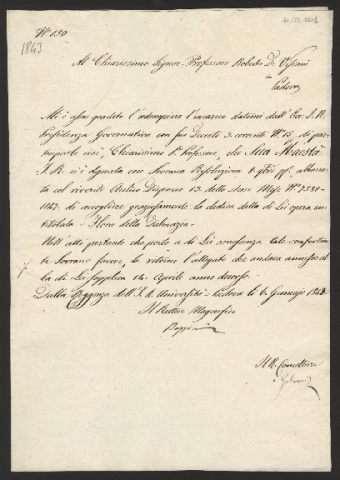 N° 130
1843
Al Chiarissimo Signor Professore Roberto De Visiani
in
Padova
Mi è assai gradito l'adempiere l'incarico datomi dall' Ecc. I. R.
Presidenza Governativa con suo Decreto 3. corrente N° 15. di
partecipare a Lei, Chiarissimo Sr. Professore, che Sua Maestà
I. R. si è degnata con Sovrana Risoluzione
col riverito Aulico Dispaccio 13. dello stesso Mese N°
1842. di accogliere graziosamente la dedica della di Lei opera in-
titolata - Flora della Dalmazia -
Nell' atto pertanto che porto a di Lei conoscenza tale confortan-
te Sovrano favore, le ritorno l'allegato che andava annesso al-
la di Lei supplica 14. Aprile anno decorso.
Dalla Reggenza dell' I. R. Università - Padova li 6. Gennajo 1843.
Il Rettore Magnifico
Il R. Cancelliere